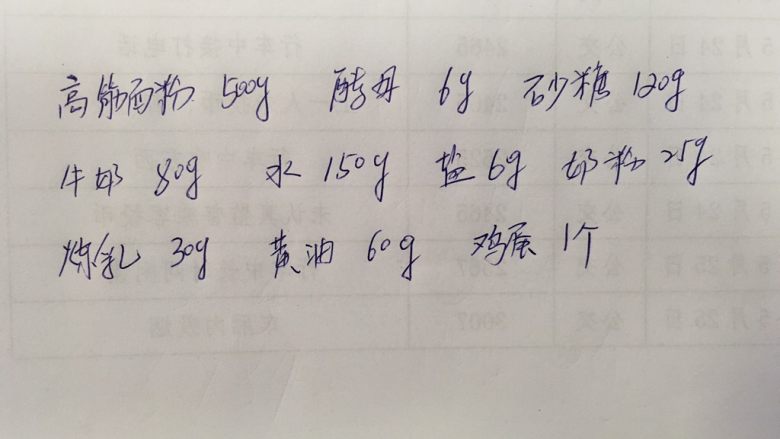 高筋面粉 500g 酵母 6g 砂糖 120g
牛奶 80g 水 150g 盐 6g 奶粉 25g
炼乳 30g 黄油 60g 鸡蛋 1个